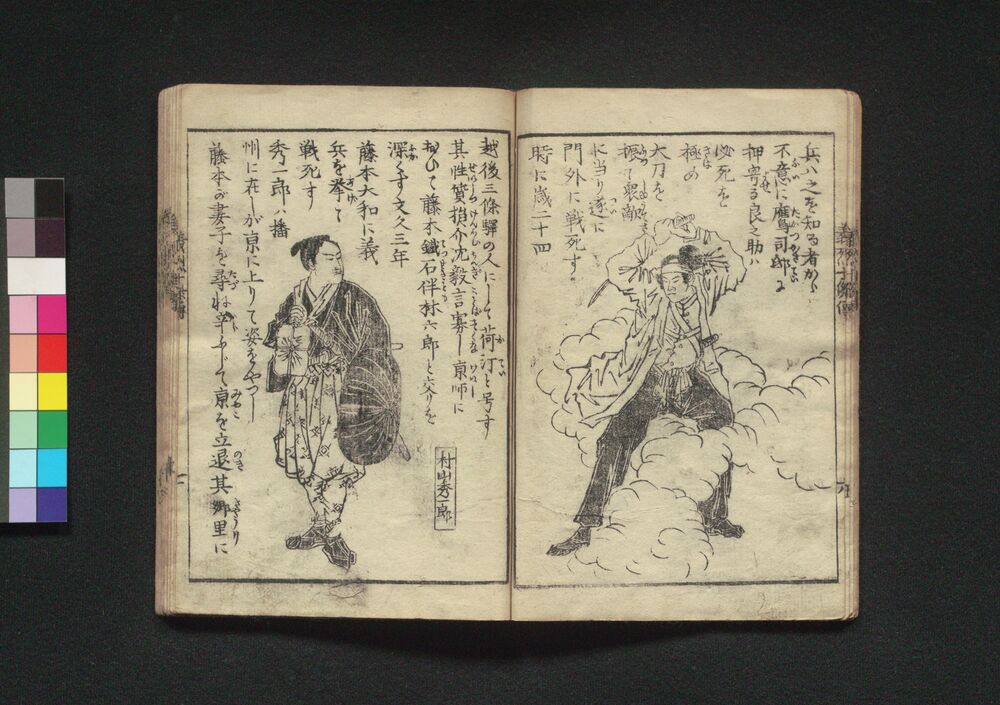 兵八之を知る者から
不意に鷹司邸に
押寄る良之助ハ
必死を
極め
大刀を
振て衆敵
に当り遂に
門外に戦死す
時に歳二十四
越後三條驛の人にして荷汀と号す
其性質狷介沈毅言寡し京師に
於ひて藤本鐵石伴林六郎と交りを
深くす文久三年
藤本大和に義
兵を挙て
戦死す
秀一郎ハ播
州に在しが京に上りて姿をやつし
藤本が妻子を尋ね辛ふじて京を立退其郷里に
村山秀一郎